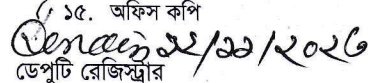 ১৫. অফিস কপি
২২/১১/২০২৩
ডেপুটি রেজিস্ট্রার